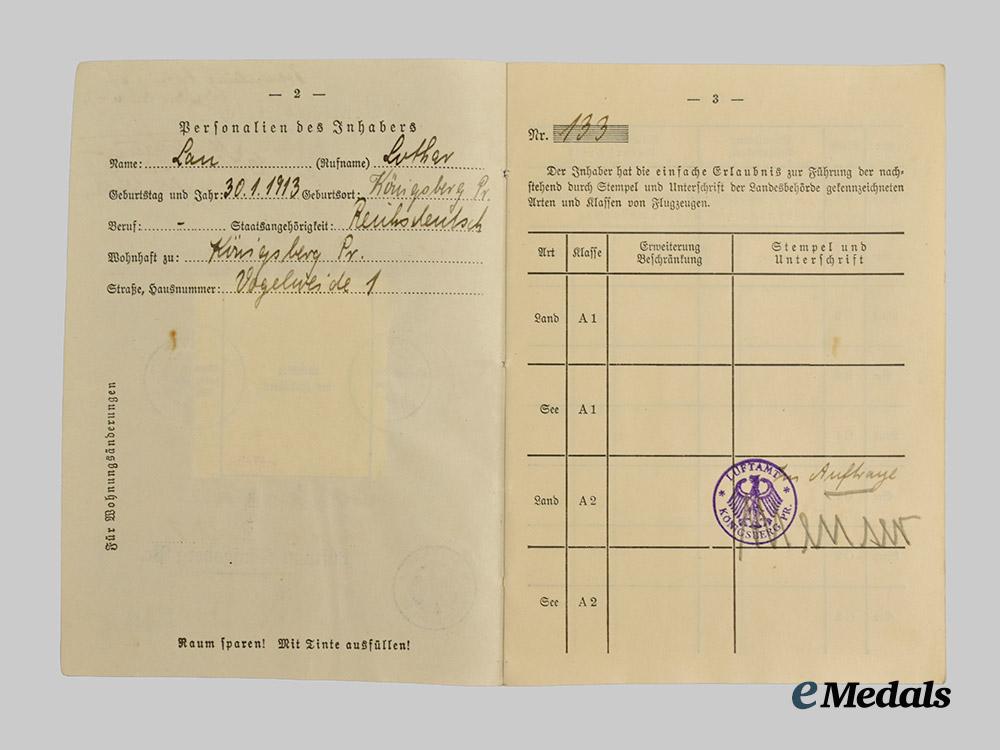 — 2 —
Personalien des Inhabers
Name: Lau (Rufname) Lothar
Geburtstag und Jahr: 30.1.1913 Geburtsort: Königsberg Pr.
Beruf: - Staatsangehörigkeit: Reichsdeutsch
Wohnhaft zu: Königsberg Pr.
Straße, Hausnummer: Vogelweide 1
Für Wohnungsänderungen
Raum sparen! Mit Tinte ausfüllen!
— 3 —
Nr. 133
Der Inhaber hat die einfache Erlaubnis zur Führung der nach-
stehend durch Stempel und Unterschrift der Landesbehörde gekennzeichneten
Arten und Klassen von Flugzeugen.
Art Klasse Erweiterung Beschränkung Stempel und Unterschrift
Land A 1
See A 1
Land A 2
LUFTAMT KÖNIGSBERG PR.
Im Auftrage
See A 2
eMedals